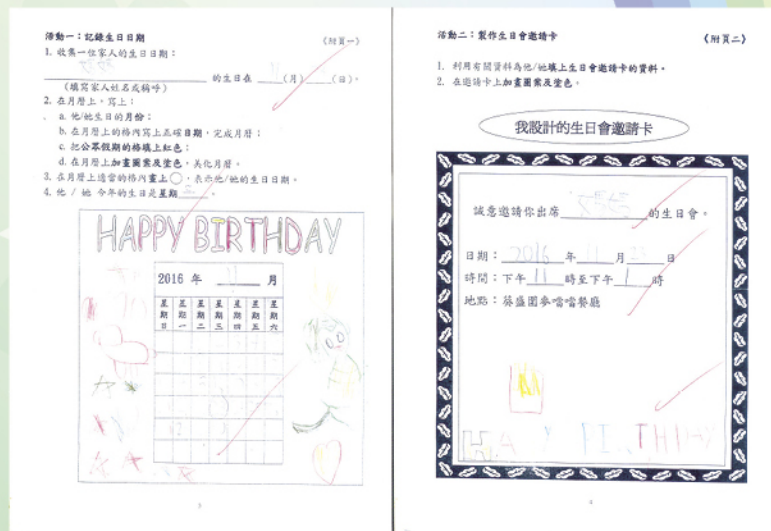 活動一：記錄生日日期
《附頁一》
1. 收集一位家人的生日日期：
的生日在 11 (月) (日)。
(填寫家人姓名或稱呼)
2. 在月曆上，寫上：
a. 他/她生日的月份；
b. 在月曆的格內寫上正確日期，完成月曆；
c. 把公眾假期的格填上紅色；
d. 在月曆上加畫圖案及塗色，美化月曆。
3. 在月曆上適當的格內畫上○，表示他/她的生日日期。
4. 他 / 她 今年的生日是星期 。
HAPPY BIRTHDAY
2016 年 11 月
星期日 星期一 星期二 星期三 星期四 星期五 星期六
活動二：製作生日會邀請卡
《附頁二》
1. 利用有關資料為他/她填上生日會邀請卡的資料。
2. 在邀請卡上加畫圖案及塗色。
我設計的生日會邀請卡
誠意邀請你出席 的生日會。
日期： 2016 年 11 月 23 日
時間：下午 11 時至下午 1 時
地點：葵盛圍麥噹噹餐廳